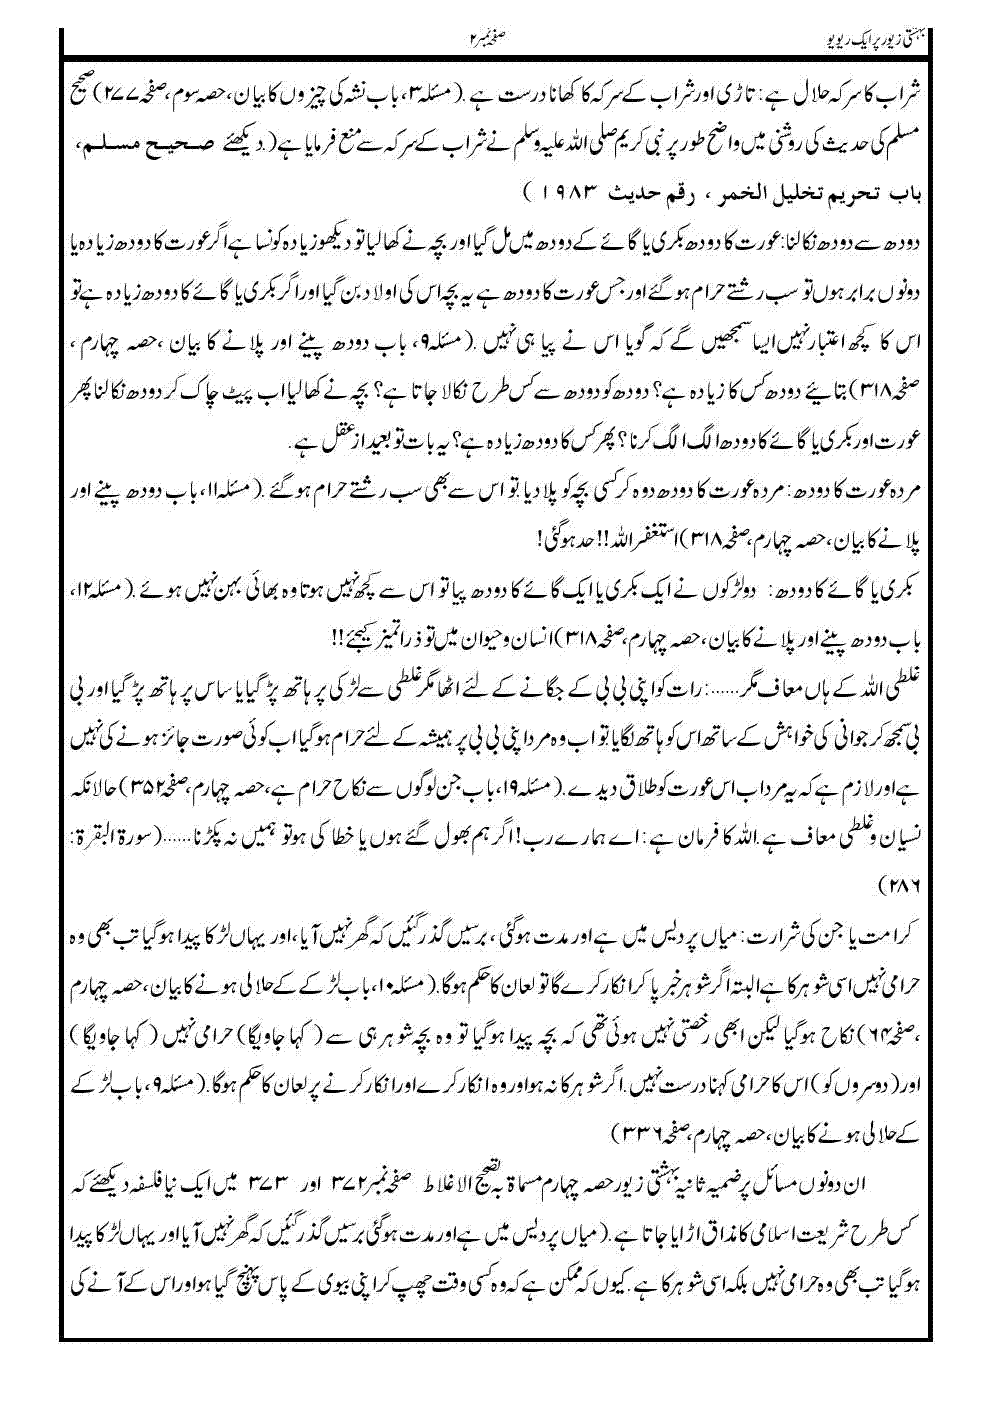 بہشتی زیور پر ایک ریویو
صفحہ نمبر ۲
شراب کا سرکہ حلال ہے: تاڑی اور شراب کے سرکہ کا کھانا درست ہے .( مسئلہ ۳، باب نشہ کی چیزوں کا بیان، حصہ سوم، صفحہ ۲۷۷) صحیح
مسلم کی حدیث کی روشنی میں واضح طور پر نبی کریم صلی اللہ علیہ وسلم نے شراب کے سرکہ سے منع فرمایا ہے( .دیکھئے صحیح مسلم،
باب تحریم تخلیل الخمر ، رقم حدیث ۱۹۸۳ )
دودھ سے دودھ نکالنا: عورت کا دودھ بکری یا گائے کے دودھ میں مل گیا اور بچہ نے کھا لیا تو دیکھو زیادہ کونسا ہے اگر عورت کا دودھ زیادہ یا
دونوں برابر ہوں تو سب رشتے حرام ہو گئے اور جس عورت کا دودھ ہے یہ بچہ اس کی اولاد بن گیا اور اگر بکری یا گائے کا دودھ زیادہ ہے تو
اس کا کچھ اعتبار نہیں ایسا سمجھیں گے کہ گویا اس نے پیا ہی نہیں .( مسئلہ ۹، باب دودھ پینے اور پلانے کا بیان ، حصہ چہارم ،
صفحہ ۳۱۸) بتایئے دودھ کس کا زیادہ ہے؟ دودھ کو دودھ سے کس طرح نکالا جاتا ہے؟ بچہ نے کھا لیا اب پیٹ چاک کر دودھ نکالنا پھر
عورت اور بکری یا گائے کا دودھ الگ الگ کرنا ؟ پھر کس کا دودھ زیادہ ہے؟ یہ بات تو بعید از عقل ہے .
مردہ عورت کا دودھ: مردہ عورت کا دودھ دوہ کر کسی بچہ کو پلا دیا تو اس سے بھی سب رشتے حرام ہو گئے .( مسئلہ ۱۱، باب دودھ پینے اور
پلانے کا بیان، حصہ چہارم، صفحہ ۳۱۸) استغفر اللہ!! حد ہو گئی!
بکری یا گائے کا دودھ: دو لڑکوں نے ایک بکری یا ایک گائے کا دودھ پیا تو اس سے کچھ نہیں ہوتا وہ بھائی بہن نہیں ہوئے .( مسئلہ ۱۲،
باب دودھ پینے اور پلانے کا بیان، حصہ چہارم، صفحہ ۳۱۸) انسان وحیوان میں تو ذرا تمیز کیجئے!!
غلطی اللہ کے ہاں معاف مگر......: رات کو اپنی بی بی کے جگانے کے لئے اٹھا مگر غلطی سے لڑکی پر ہاتھ پڑ گیا یا ساس پر ہاتھ پڑ گیا اور بی
بی سمجھ کر جوانی کی خواہش کے ساتھ اس کو ہاتھ لگایا تو اب وہ مرد اپنی بی بی پر ہمیشہ کے لئے حرام ہو گیا اب کوئی صورت جائز ہونے کی نہیں
ہے اور لازم ہے کہ یہ مرد اب اس عورت کو طلاق دیدے .( مسئلہ ۱۹، باب جن لوگوں سے نکاح حرام ہے، حصہ چہارم، صفحہ ۳۵۲) حالانکہ
نسیان وغلطی معاف ہے .اللہ کا فرمان ہے: اے ہمارے رب! اگر ہم بھول گئے ہوں یا خطا کی ہو تو ہمیں نہ پکڑنا......(سورۃ البقرۃ:
۲۸۶)
کرامت یا جن کی شرارت: میاں پردیس میں ہے اور مدت ہو گئی ، برسیں گذر گئیں کہ گھر نہیں آیا، اور یہاں لڑکا پیدا ہو گیا تب بھی وہ
حرامی نہیں اسی شوہر کا ہے البتہ اگر شوہر خبر پا کر انکار کرے گا تو لعان کا حکم ہو گا.( مسئلہ ۱۰، باب لڑکے کے حلالی ہونے کا بیان، حصہ چہارم
، صفحہ ۶۴) نکاح ہو گیا لیکن ابھی رخصتی نہیں ہوئی تھی کہ بچہ پیدا ہو گیا تو وہ بچہ شوہر ہی سے ( کہا جاویگا) حرامی نہیں ( کہا جاویگا )
اور ( دوسروں کو ) اس کا حرامی کہنا درست نہیں .اگر شوہر کا نہ ہو اور وہ انکار کرے اور انکار کرنے پر لعان کا حکم ہو گا.( مسئلہ ۹، باب لڑکے
کے حلالی ہونے کا بیان، حصہ چہارم، صفحہ ۳۳۶)
ان دونوں مسائل پر ضمیہ ثانیہ بہشتی زیور حصہ چہارم مسماۃ بہ تصحیح الاغلاط صفحہ نمبر ۳۷۲ اور ۳۷۳ میں ایک نیا فلسفہ دیکھئے کہ
کس طرح شریعت اسلامی کا مذاق اڑایا جاتا ہے .( میاں پردیس میں ہے اور مدت ہو گئی برسیں گذر گئیں کہ گھر نہیں آیا اور یہاں لڑکا پیدا
ہو گیا تب بھی وہ حرامی نہیں بلکہ اسی شوہر کا ہے .کیوں کہ ممکن ہے کہ وہ کسی وقت چھپ کر اپنی بیوی کے پاس پہنچ گیا ہو اور اس کے آنے کی